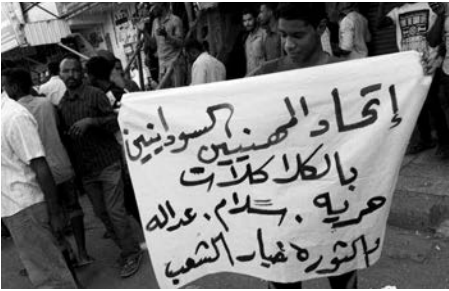 إتحاد المهنيين السودانيين
بالكلاكلات
حريه . سلام . عداله
والثورة خيار الشعب